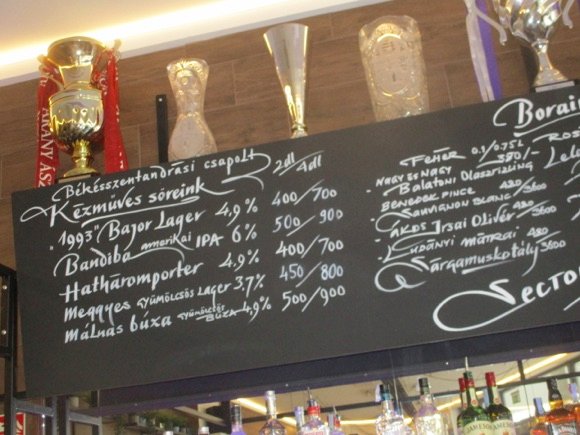 ARANY ÁSZ
Békésszentandrási csapolt
Kézműves söreink 2dl 4dl
"1993" Bajor Lager 4,9% 400/700
Bandiba amerikai IPA 6% 500/900
Hatháromporter 4,9% 400/700
Meggyes GYÜMÖLCSÖS LAGER 3,7% 450/800
Málnás búza GYÜMÖLCSÖS BÚZA 4,9% 500/900
Borai
FEHÉR 0.1/0.75L ROS
NAGY ÉS NAGY 380/-
Balatoni Olaszrizling Lel
BENEDEK PINCE 480
SAUVIGNON BLANC 3600
ÁKOS Irsai Olivér 480/3600
LUDÁNYI MÁTRAI 480
Sárgamuskotály 3600
SECTO
JAMESON